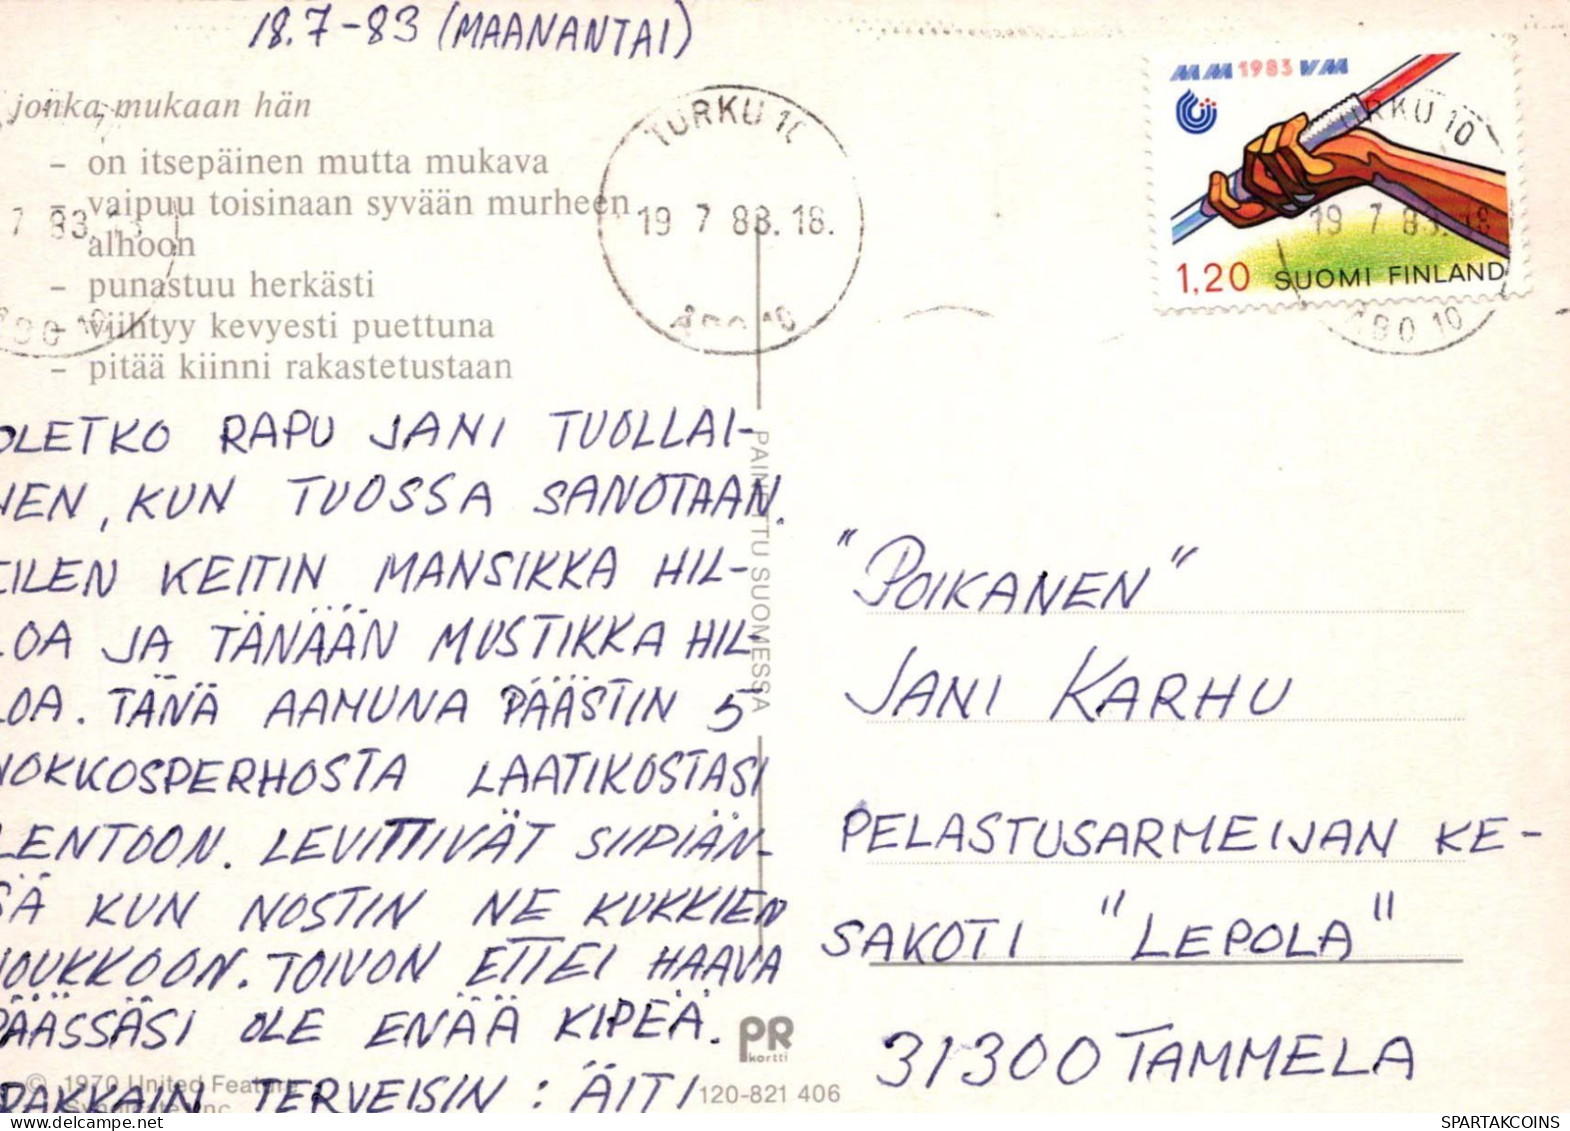 18.7-83 (MAANANTAI)
jonka mukaan hän
- on itsepäinen mutta mukava
- vaipuu toisinaan syvään murheen
alhoon
- punastuu herkästi
- viihtyy kevyesti puettuna
- pitää kiinni rakastetustaan
OLETKO RAPU JANI TUOLLAI-
NEN, KUN TUOSSA SANOTAAN.
EILEN KEITIN MANSIKKA HIL-
LOA JA TÄNÄÄN MUSTIKKA HIL-
LOA. TÄNÄ AAMUNA PÄÄSTIN 5
NOKKOSPERHOSTA LAATIKOSTASI
LENTOON. LEVITTIVÄT SIIPIÄN-
SÄ KUN NOSTIN NE KUKKIEN
JOUKKOON. TOIVON ETTEI HAAVA
PÄÄSSÄSI OLE ENÄÄ KIPEÄ.
TERVEISIN : ÄITI
© 1970 United Feature
Syndicate, Inc.
TURKU 10
19 7 83. 18.
ÅBO 10
7 83
ÅBO 10
MM 1983 VM
1,20 SUOMI FINLAND
TURKU 10
19 7 83. 18
ÅBO 10
PAINETTU SUOMESSA
PR
kortti
120-821 406
"POIKANEN"
JANI KARHU
PELASTUSARMEIJAN KE-
SAKOTI "LEPOLA"
31300 TAMMELA
SPARTAKCOINS